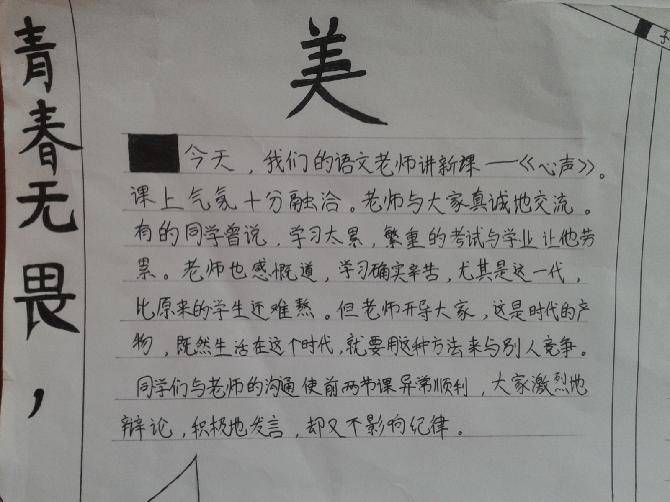 青春无畏，
美
今天，我们的语文老师讲新课——《心声》。
课上气氛十分融洽。老师与大家真诚地交流。
有的同学曾说，学习太累，繁重的考试与学业让他劳
累。老师也感慨道，学习确实辛苦，尤其是这一代，
比原来的学生还难熬。但老师开导大家，这是时代的产
物，既然生活在这个时代，就要用这种方法来与别人竞争。
同学们与老师的沟通使前两节课异常顺利，大家激烈地
辩论，积极地发言，却又不影响纪律。